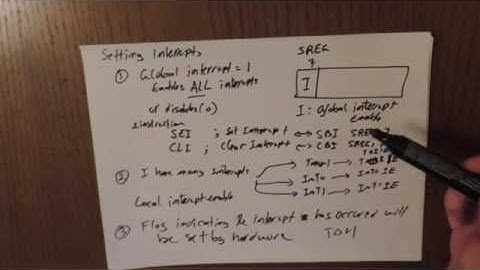 Setting Interrupts
① Global interrupt = 1
Enables ALL interrupts
or disables (0)
Instruction
SEI ; Set Interrupt ↔ SBI SREG, 7
CLI ; Clear Interrupt ↔ CBI SREG, 7
SREG
7
I
I: Global interrupt
enable
② I have many Interrupts
Local interrupt enable
→ Timer1 →
→ Int0 → Int0 IE
→ Int1 → Int1 IE
③ Flag indicating the interrupt has occurred will
be set by hardware TOV1